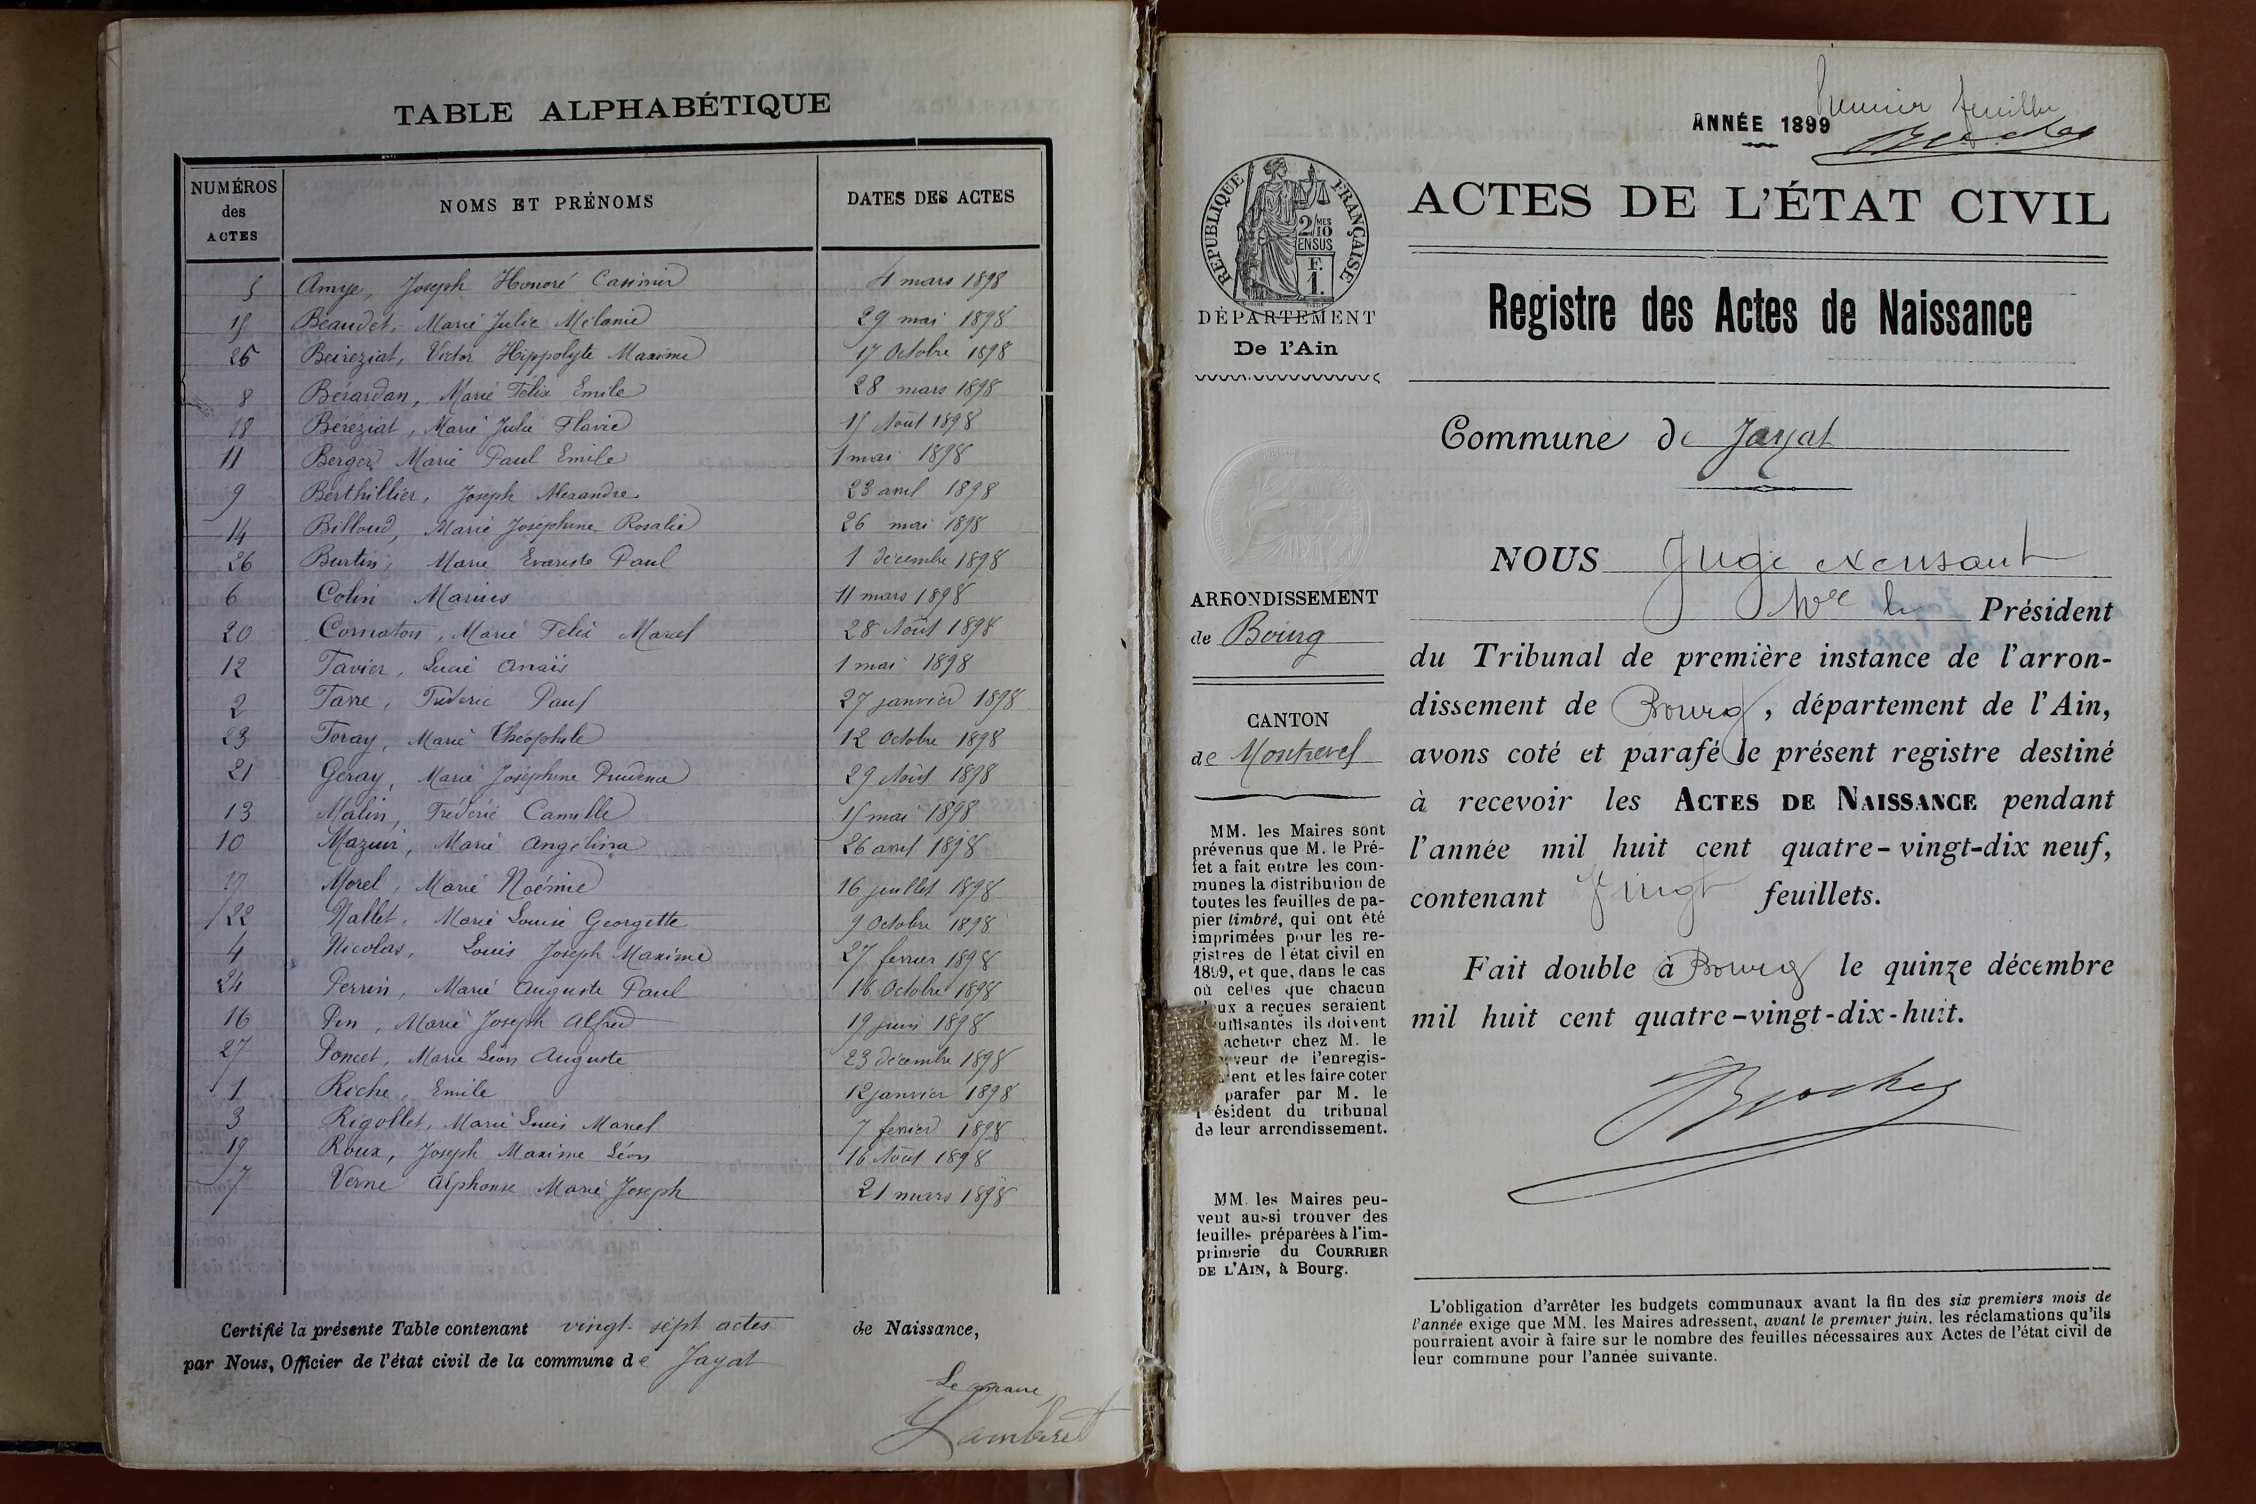 TABLE ALPHABÉTIQUE
NUMÉROS des ACTES NOMS ET PRÉNOMS DATES DES ACTES
5 Amye, Joseph Honoré Casimir 4 mars 1898
15 Beaudet, Marie Julie Mélanie 29 mai 1898
25 Beireziat, Victor Hippolyte Maxime 17 Octobre 1898
8 Bérardan, Marie Félix Emile 28 mars 1898
18 Béréziat, Marie Julie Flavie 15 Août 1898
11 Berger Marie Paul Emile 1 mai 1898
9 Berthillier, Joseph Alexandre 23 avril 1898
14 Billoud, Marie Joséphine Rosalie 26 mai 1898
26 Burtin, Marie Evariste Paul 1 décembre 1898
6 Colin Marius 11 mars 1898
20 Cornaton, Marie Félix Marcel 28 Août 1898
12 Favier, Lucie Anaïs 1 mai 1898
2 Favre, Frédéric Paul 27 janvier 1898
23 Foray, Marie Théophile 12 Octobre 1898
21 Géray, Marie Joséphine Prudence 29 Août 1898
13 Malin, Frédéric Camille 15 mai 1898
10 Mazuir, Marie Angélina 26 avril 1898
17 Morel, Marie Noémie 16 juillet 1898
22 Nallet, Marie Louise Georgette 9 Octobre 1898
4 Nicolas, Louis Joseph Maxime 27 février 1898
24 Perrin, Marie Auguste Paul 16 Octobre 1898
16 Pin, Marie Joseph Alfred 19 juin 1898
27 Poncet, Marie Léon Auguste 23 décembre 1898
1 Riche, Emile 12 janvier 1898
3 Rigollet, Marie Louis Marcel 7 février 1898
19 Roux, Joseph Maxime Léon 16 Août 1898
7 Verne Alphonse Marie Joseph 21 mars 1898
Certifié la présente Table contenant vingt-sept actes de Naissance,
par Nous, Officier de l'état civil de la commune de Jayat
Le maire,
Lambert
Premier feuillet
ANNÉE 1899
RÉPUBLIQUE FRANÇAISE
2/10 MES
EN SUS
F.
1.
DÉPARTEMENT
De l'Ain
ARRONDISSEMENT
de Bourg
CANTON
de Montrevel
MM. les Maires sont
prévenus que M. le Pré-
fet a fait entre les com-
munes la distribution de
toutes les feuilles de pa-
pier timbré, qui ont été
imprimées pour les re-
gistres de l'état civil en
1899, et que, dans le cas
où celles que chacun
eux a reçues seraient
uffisantes ils doivent
acheter chez M. le
veur de l'enregis-
ent et les faire coter
parafer par M. le
ésident du tribunal
de leur arrondissement.
MM. les Maires peu-
vent aussi trouver des
feuilles préparées à l'im-
primerie du COURRIER
DE L'AIN, à Bourg.
ACTES DE L'ÉTAT CIVIL
Registre des Actes de Naissance
Commune de Jayat
NOUS Juge
Président
du Tribunal de première instance de l'arron-
dissement de Bourg, département de l'Ain,
avons coté et parafé le présent registre destiné
à recevoir les ACTES DE NAISSANCE pendant
l'année mil huit cent quatre-vingt-dix neuf,
contenant Vingt feuillets.
Fait double à Bourg le quinze décembre
mil huit cent quatre-vingt-dix-huit.
L'obligation d'arrêter les budgets communaux avant la fin des six premiers mois de
l'année exige que MM. les Maires adressent, avant le premier juin, les réclamations qu'ils
pourraient avoir à faire sur le nombre des feuilles nécessaires aux Actes de l'état civil de
leur commune pour l'année suivante.